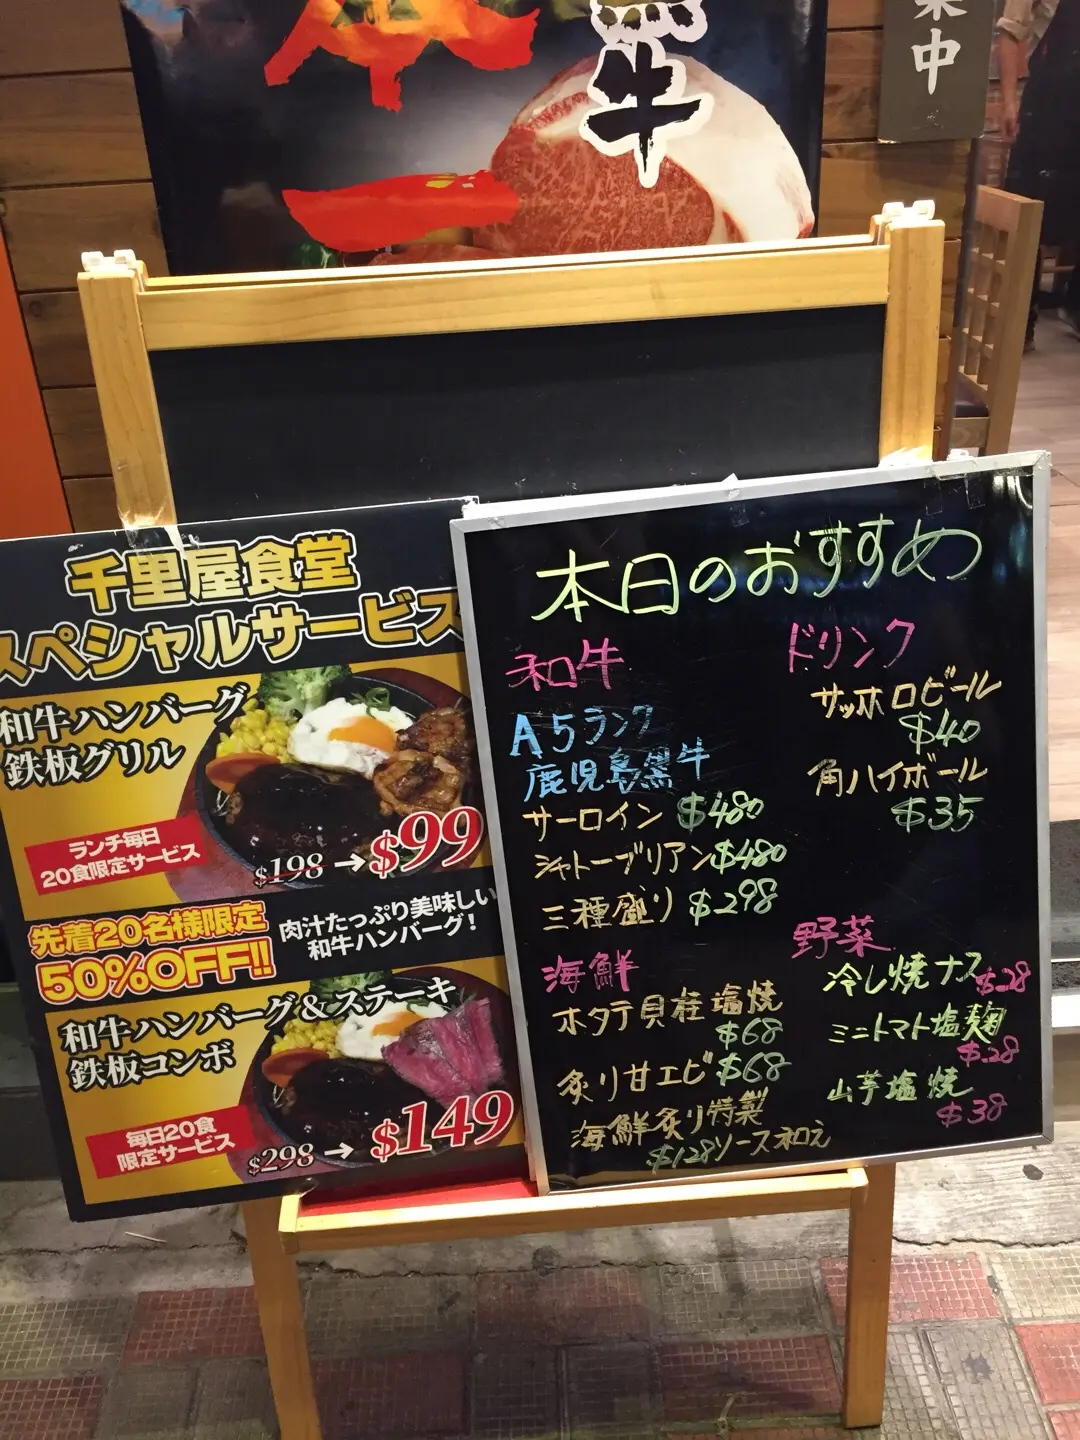 黒牛
業中
千里屋食堂
スペシャルサービス
和牛ハンバーグ
鉄板グリル
ランチ毎日
20食限定サービス
$198→$99
先着20名様限定
50%OFF!!
肉汁たっぷり美味しい
和牛ハンバーグ!
和牛ハンバーグ&ステーキ
鉄板コンボ
毎日20食
限定サービス
$298→$149
本日のおすすめ
和牛
A5ランク
鹿児島黒牛
サーロイン $480
シャトーブリアン $480
三種盛り $298
海鮮
ホタテ貝柱塩焼
$68
炙り甘エビ $68
海鮮炙り特製
$128 ソース和え
ドリンク
サッポロビール
$40
角ハイボール
$35
野菜
冷し焼ナス $28
ミニトマト塩麹
$28
山芋塩焼
$38